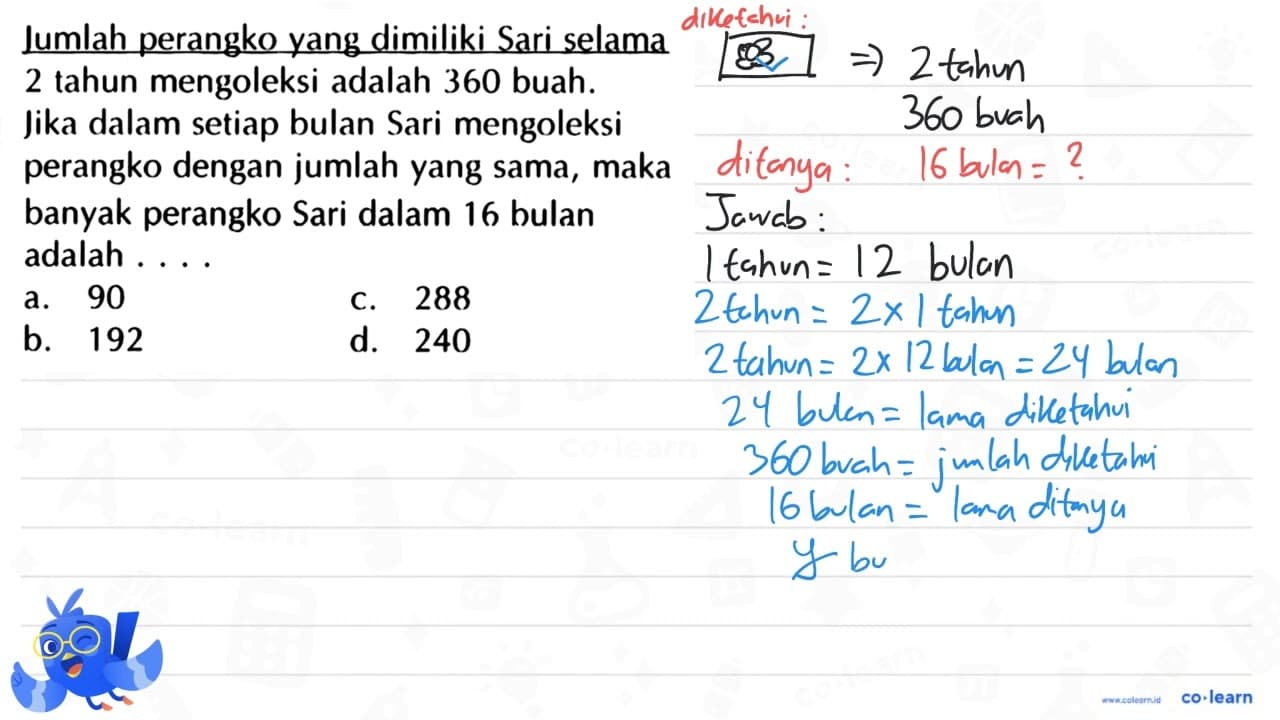 Jumlah perangko yang dimiliki Sari selama
2 tahun mengoleksi adalah 360 buah.
Jika dalam setiap bulan Sari mengoleksi
perangko dengan jumlah yang sama, maka
banyak perangko Sari dalam 16 bulan
adalah . . . .
a. 90
c. 288
b. 192
d. 240
diketahui :
=> 2 tahun
360 buah
ditanya : 16 bulan = ?
Jawab :
1 tahun = 12 bulan
2 tahun = 2 x 1 tahun
2 tahun = 2 x 12 bulan = 24 bulan
24 bulan = lama diketahui
360 buah = jumlah diketahui
16 bulan = lama ditanya
y bu
www.colearn.id co·learn